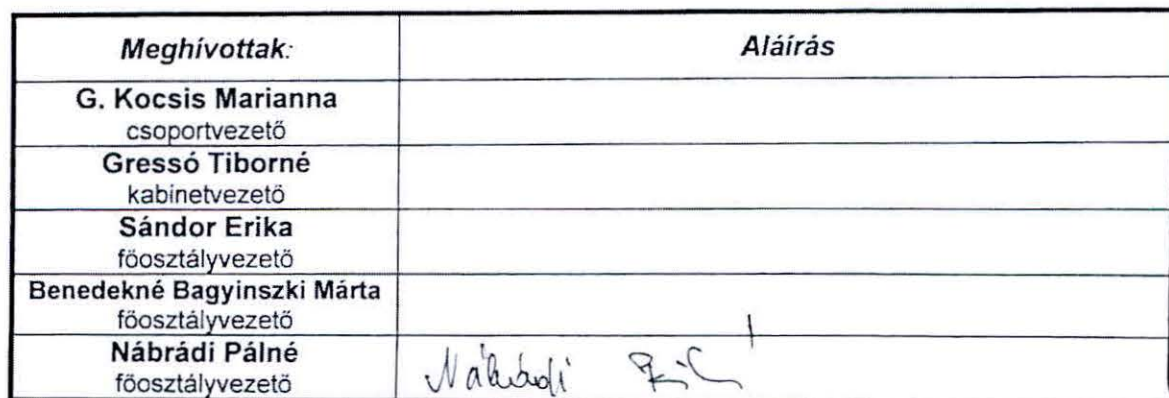 Meghívottak: Aláírás
G. Kocsis Marianna
csoportvezető
Gressó Tiborné
kabinetvezető
Sándor Erika
főosztályvezető
Benedekné Bagyinszki Márta
főosztályvezető
Nábrádi Pálné
főosztályvezető
Nábrádi